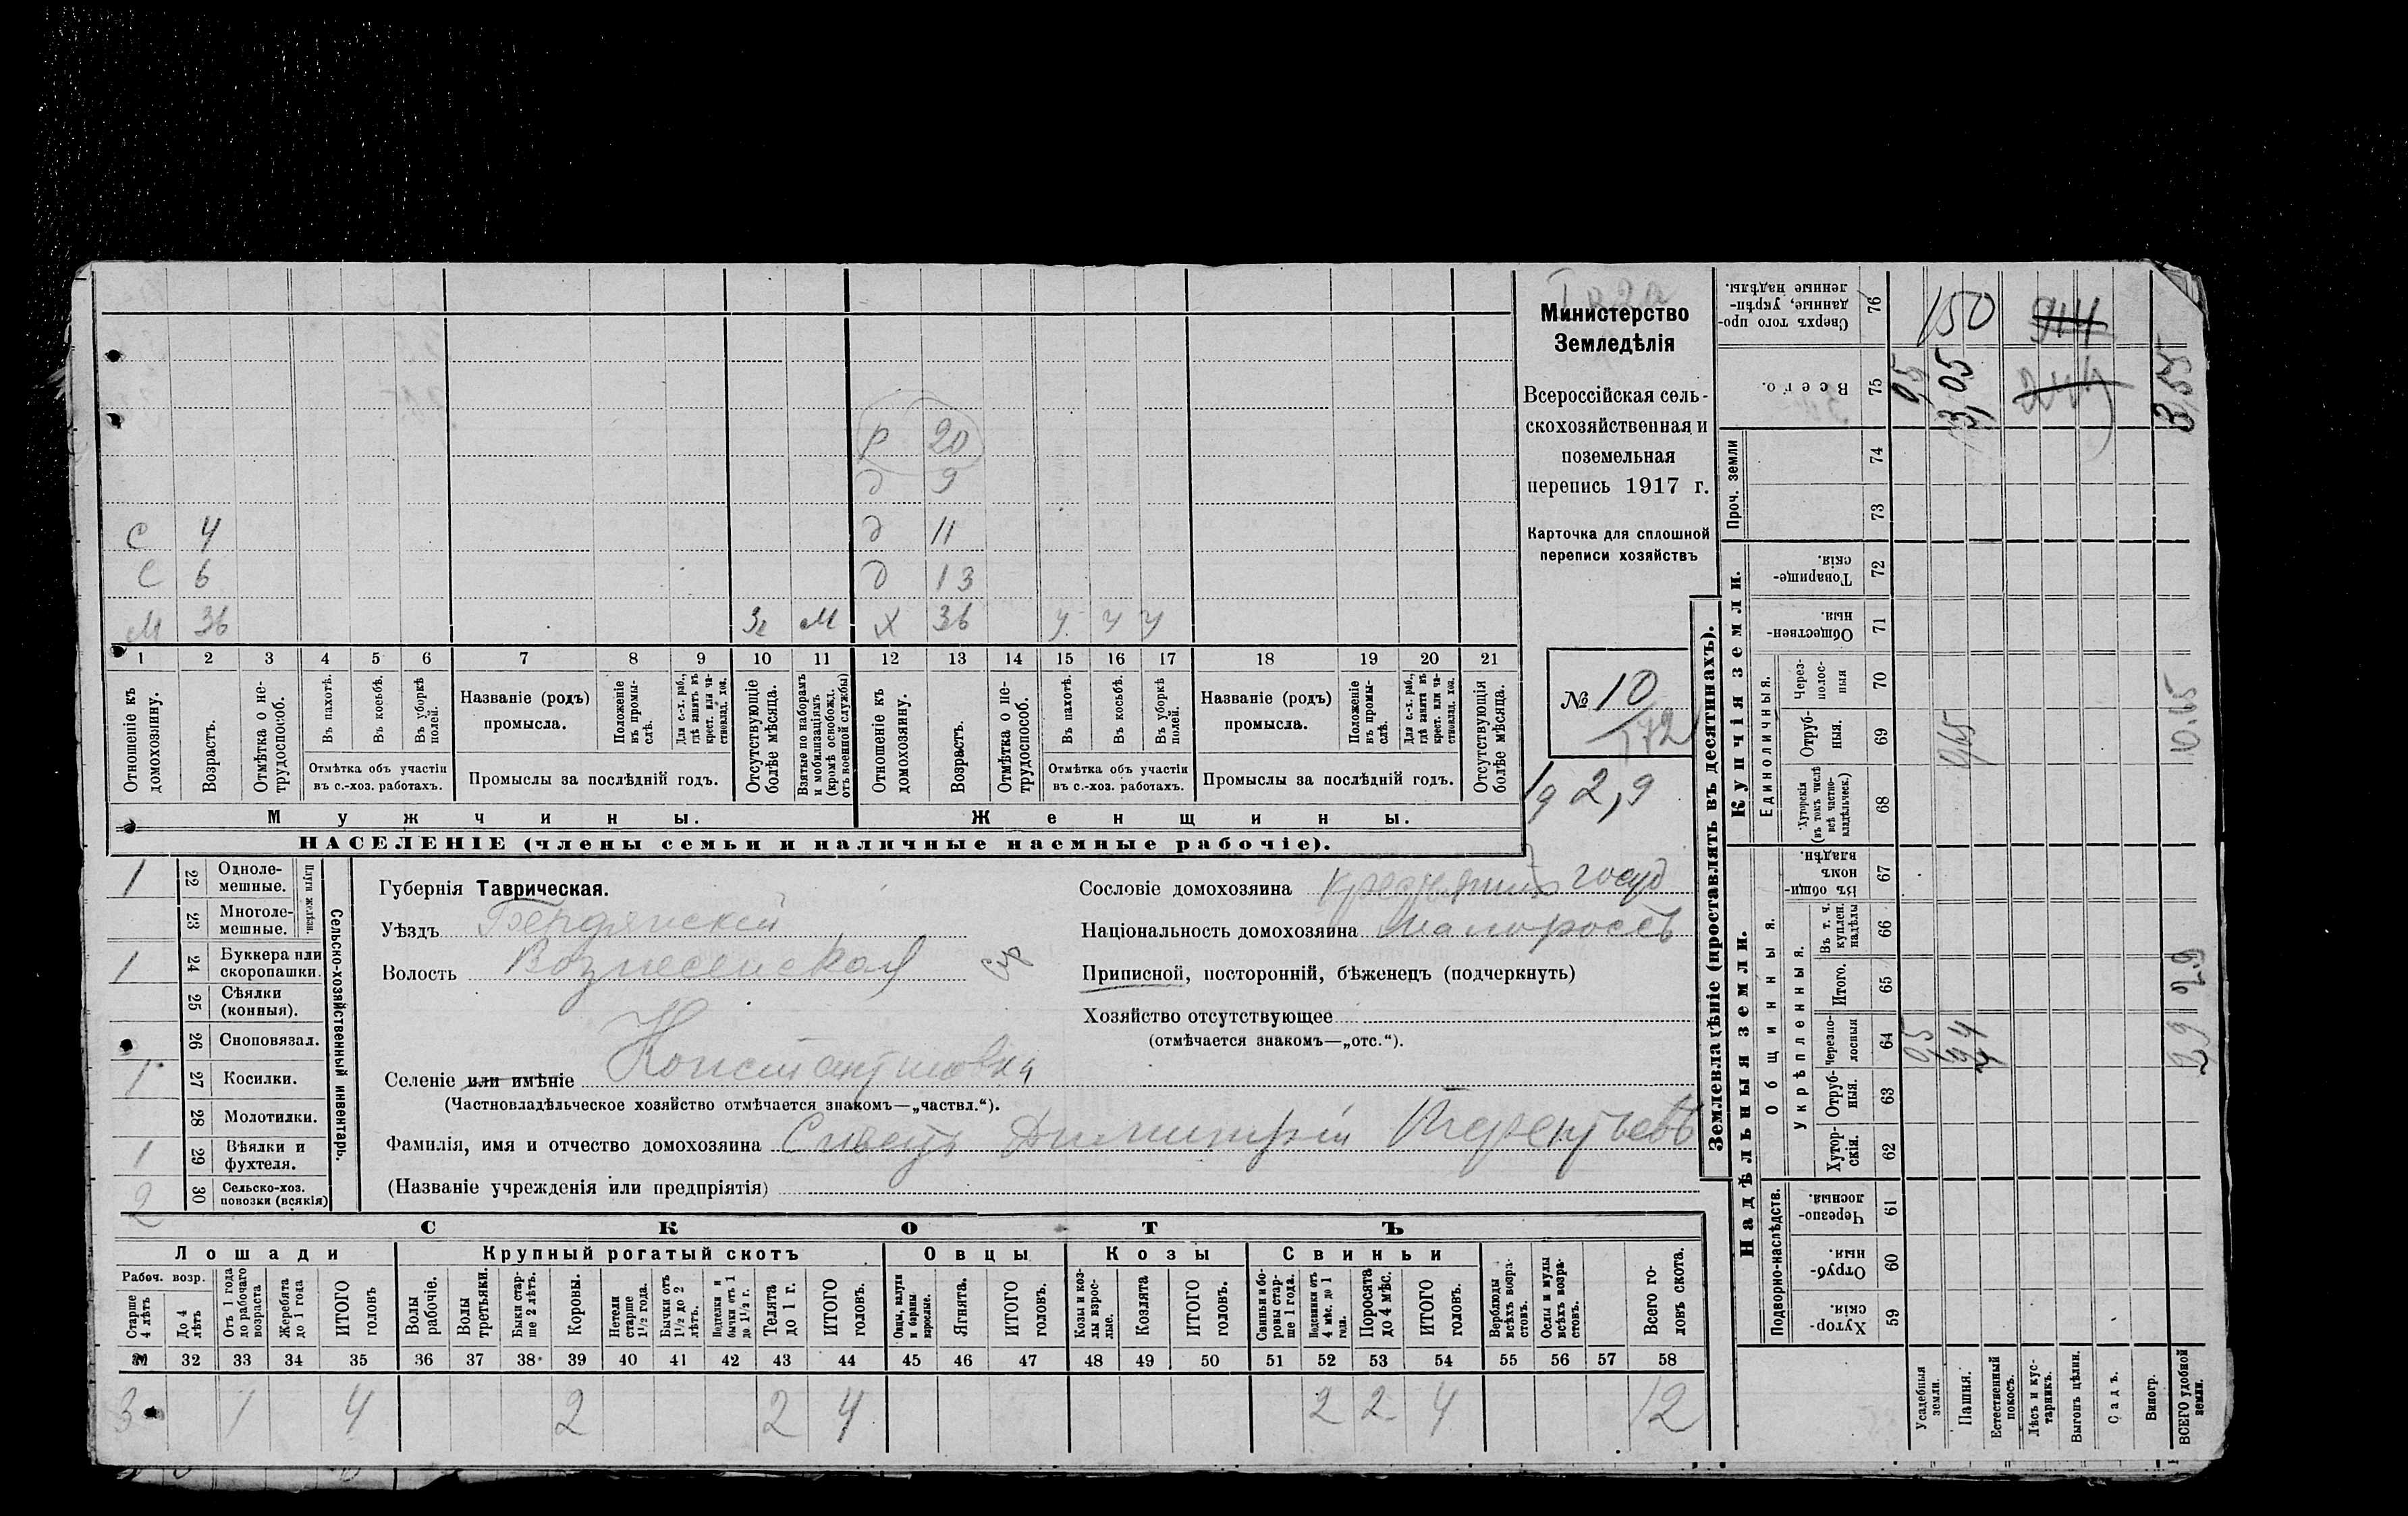 Министерство
Земледѣлія
Всероссійская сель-
скохозяйственная и
поземельная
перепись 1917 г.
Карточка для сплошной
переписи хозяйствъ
№ 10
172
2,9
р 20
д 9
с 4 д 11
с 6 д 13
м 36 м х 36 у у у
1 2 3 4 5 6 7 8 9 10 11 12 13 14 15 16 17 18 19 20 21
Отношеніе къ домохозяину.
Возрастъ.
Отмѣтка о не-трудоспособ.
Въ пахотѣ.
Въ косьбѣ.
Въ уборкѣ полей.
Отмѣтка объ участіи
въ с.-хоз. работахъ.
Названіе (родъ)
промысла.
Положеніе въ промы-слѣ.
Для с.-х. раб., гдѣ занятъ въ крест. или ча-стновлад. хоз.
Промыслы за послѣдній годъ.
Отсутствующіе болѣе мѣсяца.
Взятые по наборамъ и мобилизаціямъ (кромѣ освобожд. отъ военной службы)
Отношеніе къ домохозяину.
Возрастъ.
Отмѣтка о не-трудоспособ.
Въ пахотѣ.
Въ косьбѣ.
Въ уборкѣ полей.
Отмѣтка объ участіи
въ с.-хоз. работахъ.
Названіе (родъ)
промысла.
Положеніе въ промы-слѣ.
Для с.-х. раб., гдѣ занятъ въ крест. или ча-стновлад. хоз.
Промыслы за послѣдній годъ.
Отсутствующія болѣе мѣсяца.
Мужчины. Женщины.
НАСЕЛЕНІЕ (члены семьи и наличные наемные рабочіе).
1 22 Одноле-мешные.
23 Многоле-мешные.
Плуги желѣзн.
1 24 Буккера или скоропашки.
25 Сѣялки (конныя).
26 Сноповязал.
1 27 Косилки.
28 Молотилки.
1 29 Вѣялки и фухтеля.
2 30 Сельско-хоз. повозки (всякія)
Сельско-хозяйственный инвентарь.
Губернія Таврическая.
Уѣздъ Бердянскій
Волость Вознесенская
Селеніе или имѣніе Константиновка
(Частновладѣльческое хозяйство отмѣчается знакомъ—„частвл.“).
Фамилія, имя и отчество домохозяина Сивець Димитрій Терентьевъ
(Названіе учрежденія или предпріятія)
Сословіе домохозяина крестьянинъ госуд
Національность домохозяина малороссъ
Приписной, посторонній, бѣженецъ (подчеркнуть)
Хозяйство отсутствующее
(отмѣчается знакомъ—„отс.“).
СКОТЪ
Лошади Крупный рогатый скотъ Овцы Козы Свиньи
Рабоч. возр.
Старше 4 лѣтъ
До 4 лѣтъ
Отъ 1 года до рабочаго возраста
Жеребята до 1 года
ИТОГО головъ
Волы рабочіе.
Волы третьяки.
Быки стар-ше 2 лѣтъ.
Коровы.
Нетели старше 1½ года.
Бычки отъ 1½ до 2 лѣтъ.
Подтелки и бычки отъ 1 до 1½ г.
Телята до 1 г.
ИТОГО головъ.
Овцы, валухи и бараны взрослые.
Ягнята.
ИТОГО головъ.
Козы и коз-лы взрос-лые.
Козлята
ИТОГО головъ.
Свиньи и бо-ровы стар-ше 1 года.
Подсвинки отъ 4 мѣс. до 1 года.
Поросята до 4 мѣс.
ИТОГО головъ.
Верблюды всѣхъ возра-стовъ.
Ослы и мулы всѣхъ возра-стовъ.
Всего го-ловъ скота.
32 33 34 35 36 37 38 39 40 41 42 43 44 45 46 47 48 49 50 51 52 53 54 55 56 57 58
3 1 4 2 2 4 2 2 4 12
Землевладѣніе (проставлять въ десятинахъ).
Надѣльныя земли. Купчія земли.
Подворно-наслѣдств.
Общинныя.
Укрѣпленныя.
Единоличныя.
Проч. земли
Хутор-скія. 59
Отруб-ныя. 60
Черезпо-лосныя 61
Хутор-скія. 62
Отруб-ныя. 63
Черезпо-лосныя 64
Итого. 65
Въ т. ч. куплен. надѣлы 66
Въ общи-номъ владѣн. 67
Хуторскія (въ томъ числѣ всѣ частно-владѣльческ.) 68
Отруб-ныя. 69
Через-полос-ныя 70
Обществен-ныя. 71
Товарище-скія. 72
73
74
Всего. 75
Сверхъ того про-данные, укрѣп-ленные надѣлы. 76
Усадебныя земли.
Пашня.
Естественный покосъ.
Лѣсъ и кус-тарникъ.
Выгонъ цѣлин.
Садъ.
Виногр.
ВСЕГО удобной земли.
150
3,05
10.65